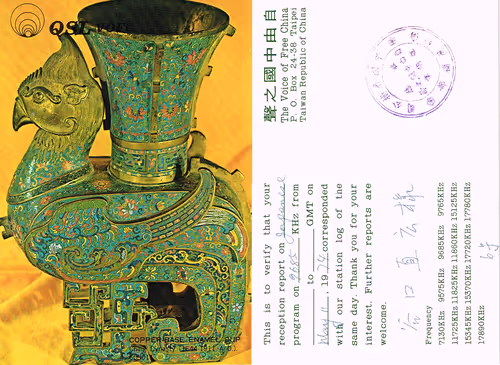 QSL
COPPER-BASE ENAMEL CUP
自由中國之聲
The Voice of Free China
P. O. Box 24-38 Taipei
Taiwan Republic of China
This is to verify that your
reception report on Japanese
program on 9685 KHz from
to GMT on
May 11, 1974 corresponded
with our station log of the
same day. Thank you for your
interest. Further reports are
welcome.
谷口直宏様
Frequency
7130KHz 9575KHz 9685KHz 9765KHz
11725KHz 11825KHz 11860KHz 15125KHz
15345KHz 15370KHz 17720KHz 17780KHz
17890KHz